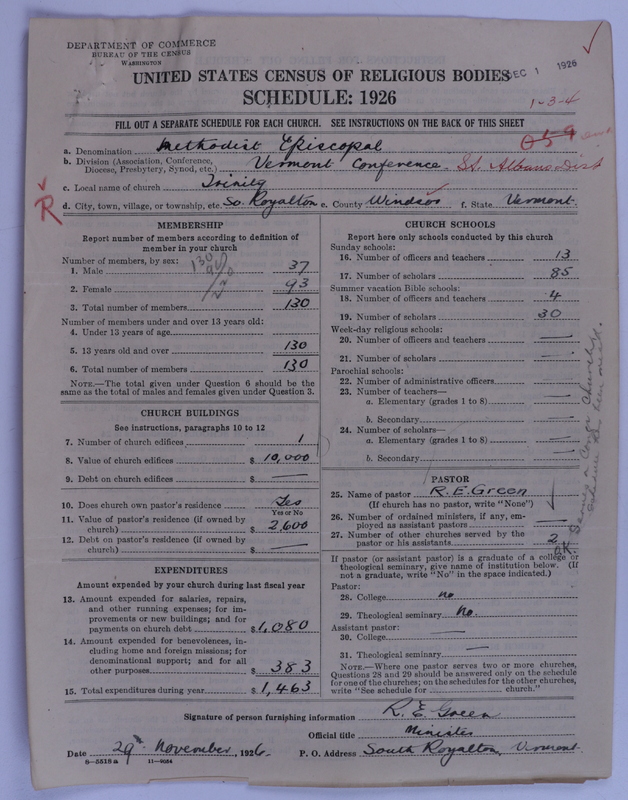 DEPARTMENT OF COMMERCE
BUREAU OF THE CENSUS
WASHINGTON
DEC 1 1926
UNITED STATES CENSUS OF RELIGIOUS BODIES
SCHEDULE: 1926
1-3-4
FILL OUT A SEPARATE SCHEDULE FOR EACH CHURCH. SEE INSTRUCTIONS ON THE BACK OF THIS SHEET
059
a. Denomination Methodist Episcopal
b. Division (Association, Conference, Diocese, Presbytery, Synod, etc.) Vermont Conference St. Albans Dist
c. Local name of church Trinity
R
d. City, town, village, or township, etc. So. Royalton e. County Windsor f. State Vermont
MEMBERSHIP
Report number of members according to definition of
member in your church
Number of members, by sex:
1. Male 37
2. Female 93
3. Total number of members 130
Number of members under and over 13 years old:
4. Under 13 years of age
5. 13 years old and over 130
6. Total number of members 130
NOTE.—The total given under Question 6 should be the
same as the total of males and females given under Question 3.
CHURCH BUILDINGS
See instructions, paragraphs 10 to 12
7. Number of church edifices 1
8. Value of church edifices $ 10,000
9. Debt on church edifices $ —
10. Does church own pastor's residence Yes
Yes or No
11. Value of pastor's residence (if owned by
church) $ 2,600
12. Debt on pastor's residence (if owned by
church) $ —
EXPENDITURES
Amount expended by your church during last fiscal year
13. Amount expended for salaries, repairs,
and other running expenses; for im-
provements or new buildings; and for
payments on church debt $ 1,080
14. Amount expended for benevolences, in-
cluding home and foreign missions; for
denominational support; and for all
other purposes $ 383
15. Total expenditures during year $ 1,463
CHURCH SCHOOLS
Report here only schools conducted by this church
Sunday schools:
16. Number of officers and teachers 13
17. Number of scholars 85
Summer vacation Bible schools:
18. Number of officers and teachers 4
19. Number of scholars 30
Week-day religious schools:
20. Number of officers and teachers —
21. Number of scholars —
Parochial schools:
22. Number of administrative officers
23. Number of teachers—
a. Elementary (grades 1 to 8) —
b. Secondary —
24. Number of scholars—
a. Elementary (grades 1 to 8) —
b. Secondary —
PASTOR
25. Name of pastor R. E. Green
(If church has no pastor, write "None")
26. Number of ordained ministers, if any, em-
ployed as assistant pastors —
27. Number of other churches served by the
pastor or his assistants 2
O.K.
If pastor (or assistant pastor) is a graduate of a college or
theological seminary, give name of institution below. (If
not a graduate, write "No" in the space indicated.)
Pastor:
28. College no
29. Theological seminary No.
Assistant pastor:
30. College —
31. Theological seminary —
NOTE.—Where one pastor serves two or more churches,
Questions 28 and 29 should be answered only on the schedule
for one of the churches; on the schedules for the other churches,
write "See schedule for church."
Signature of person furnishing information R. E. Green
Official title Minister
Date 29th November, 1926. P. O. Address South Royalton, Vermont.
8-5518 a 11-9054